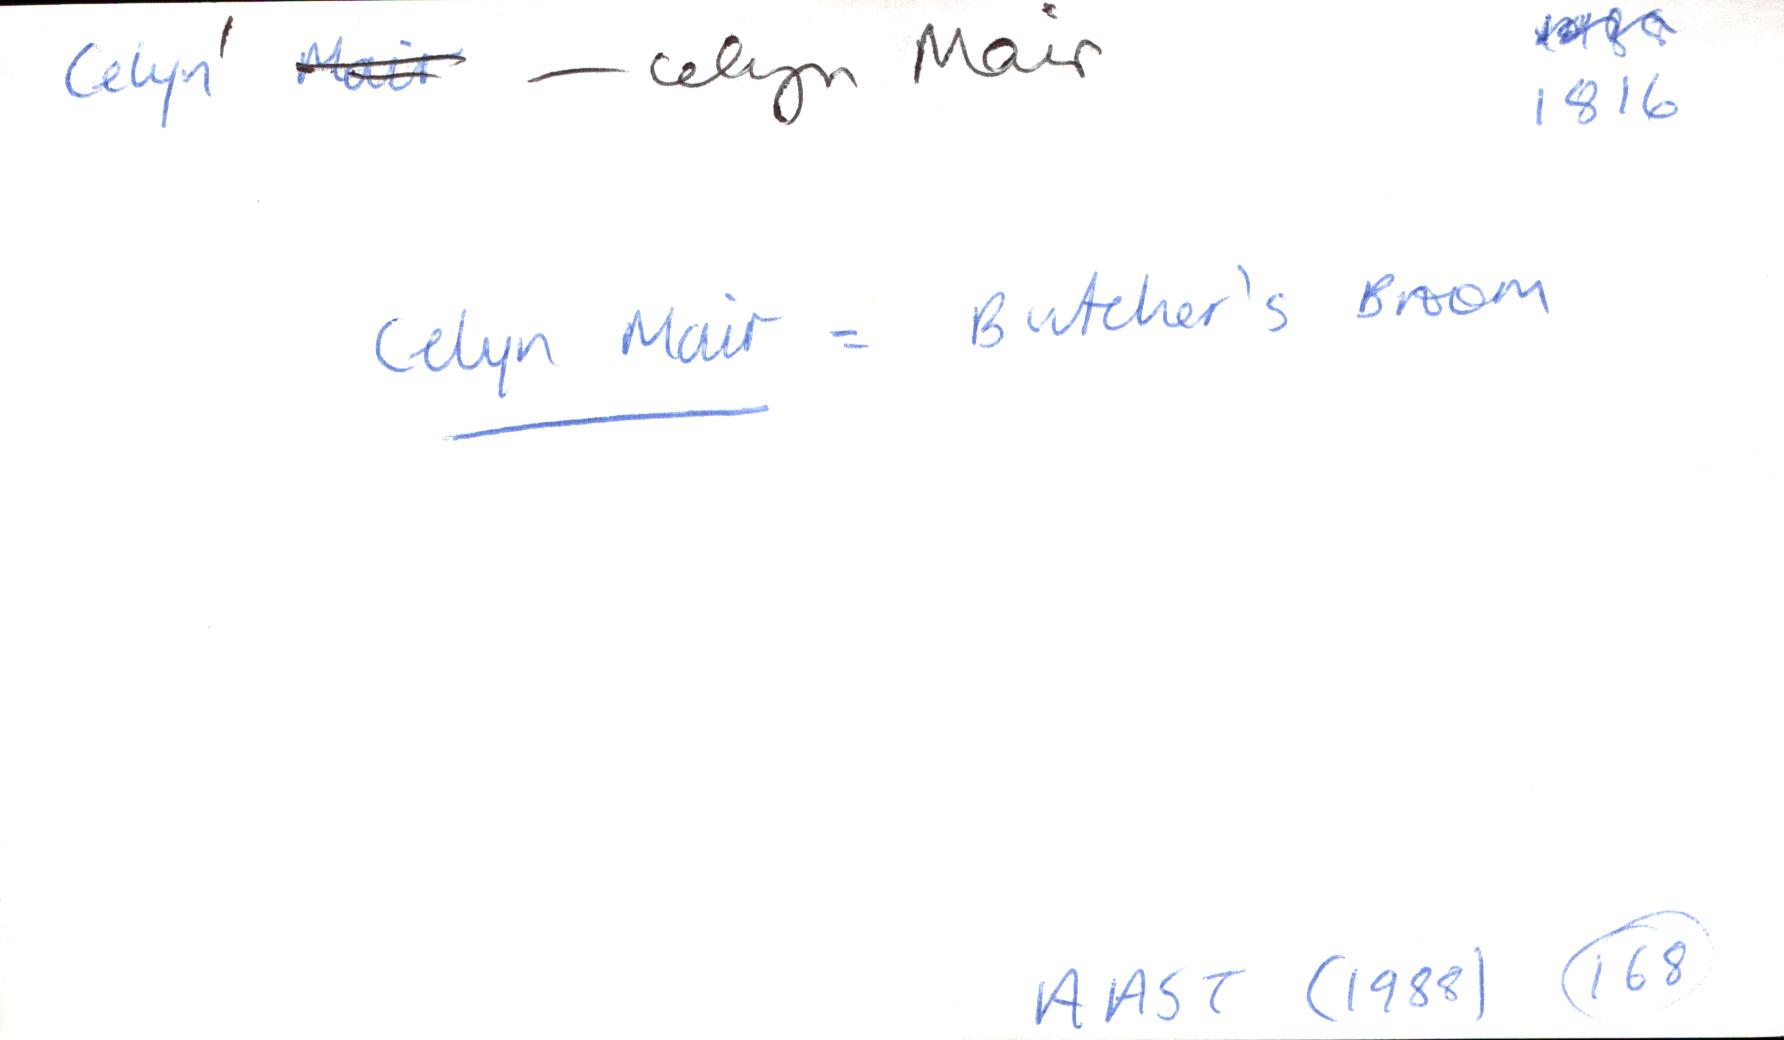 Celyn' Mair — celyn Mair
1816
Celyn Mair = Butcher's Broom
AAST (1988) 168